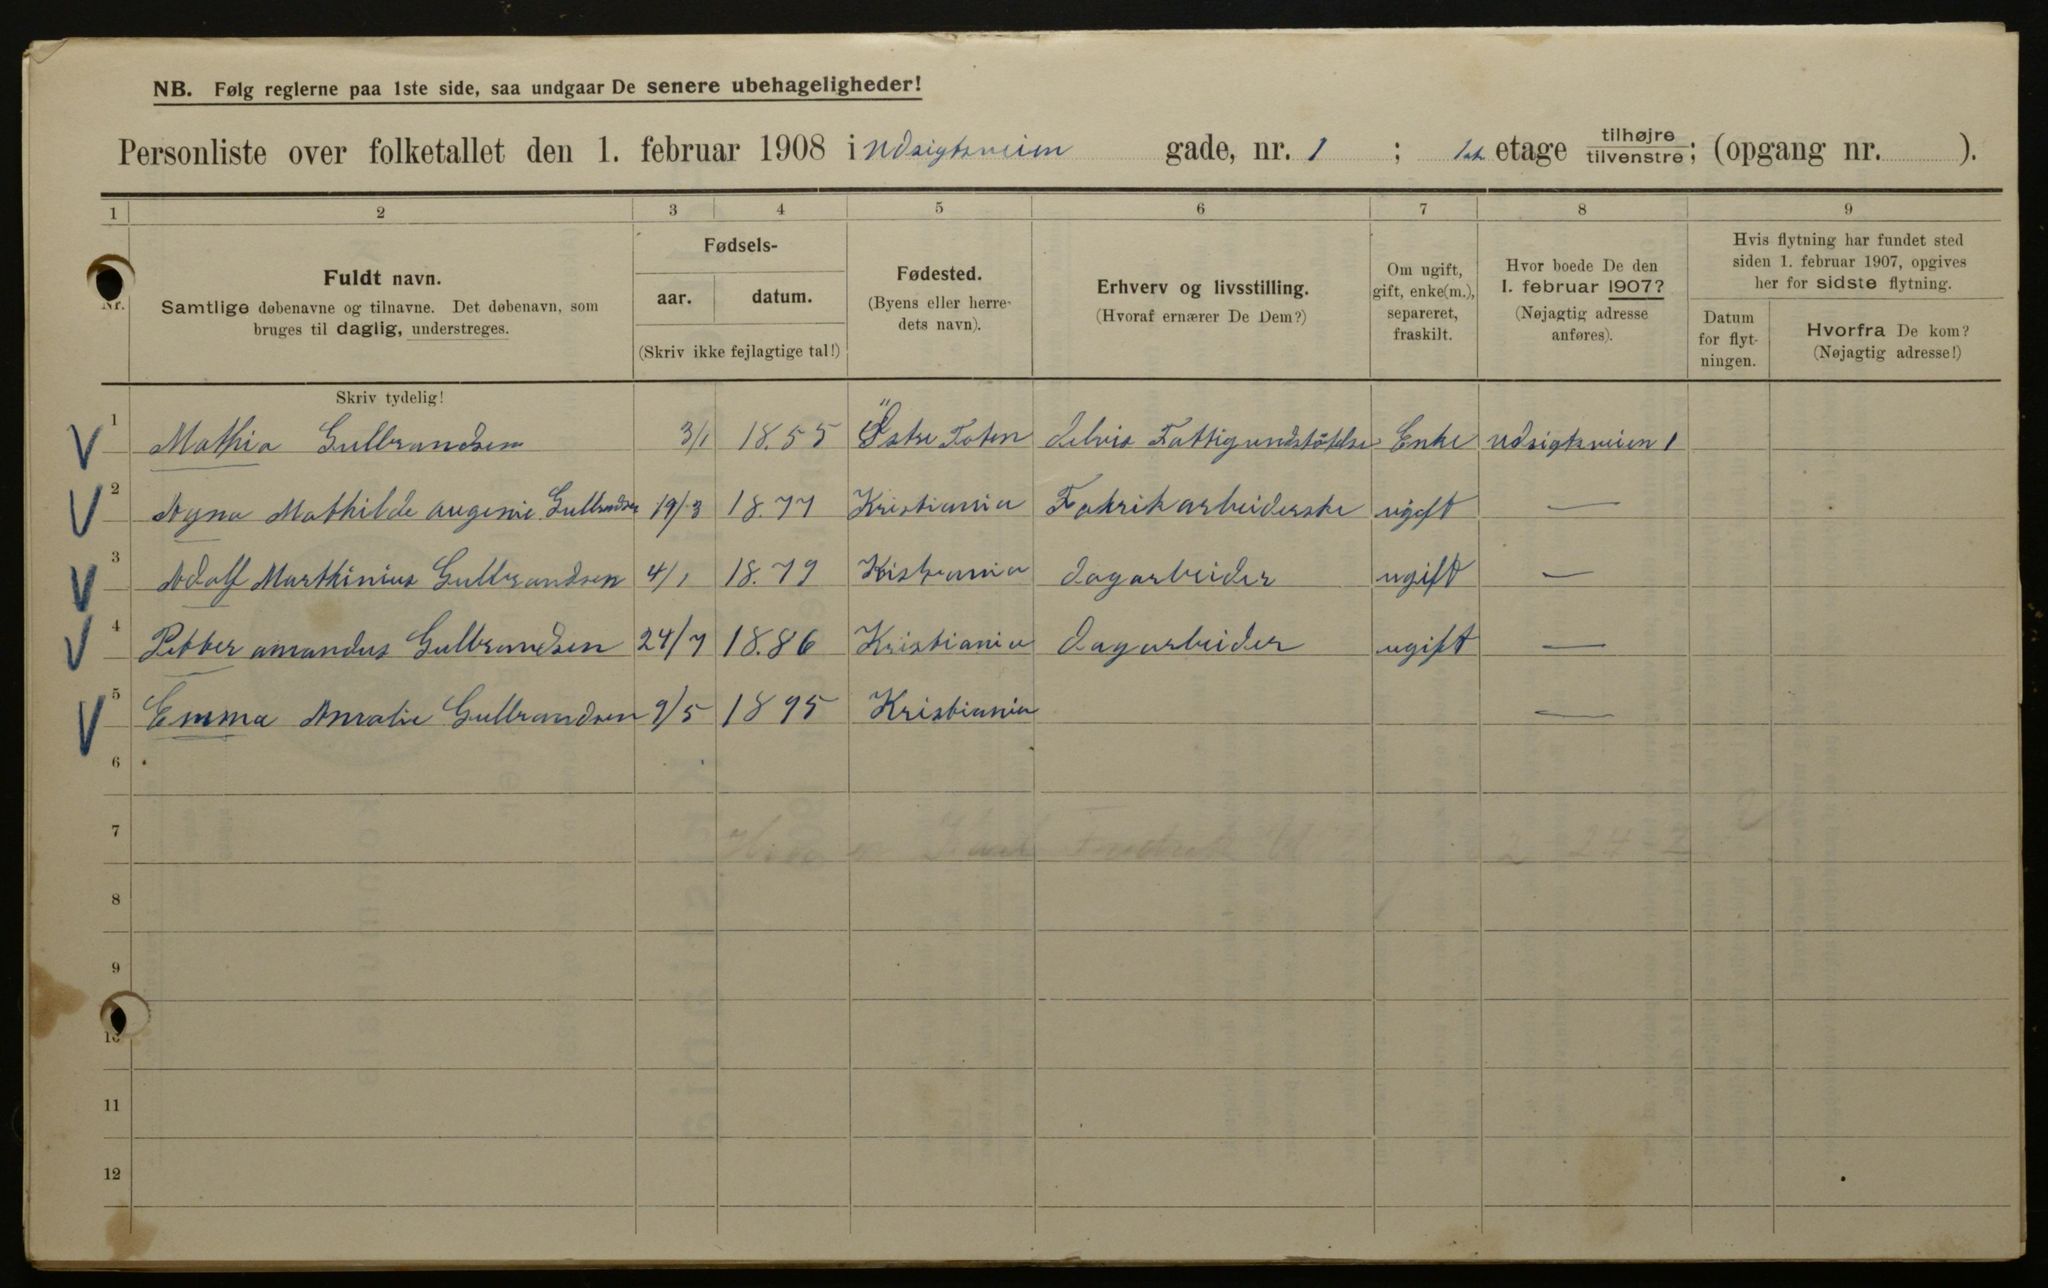 NB. Følg reglerne paa 1ste side, saa undgaar De senere ubehageligheder!
Personliste over folketallet den 1. februar 1908 i Udsigtsveien gade, nr. 1 ; 1ste etage tilhøjre tilvenstre; (opgang nr. ).
1 2 3 4 5 6 7 8 9
Nr.
Fuldt navn.
Samtlige døbenavne og tilnavne. Det døbenavn, som
bruges til daglig, understreges.
Fødsels-
aar. datum.
(Skriv ikke fejlagtige tal!)
Fødested.
(Byens eller herre-
dets navn).
Erhverv og livsstilling.
(Hvoraf ernærer De Dem?)
Om ugift,
gift, enke(m.),
separeret,
fraskilt.
Hvor boede De den
1. februar 1907?
(Nøjagtig adresse
anføres).
Hvis flytning har fundet sted
siden 1. februar 1907, opgives
her for sidste flytning.
Datum
for flyt-
ningen.
Hvorfra De kom?
(Nøjagtig adresse!)
Skriv tydelig!
V 1 Mathia Gulbrandsen 3/1 18.55 Östre Toten delvis Fattigundstötelse Enke Udsigtsveien 1
V 2 Agna Mathilde augenie Gulbrandsen 19/3 18.77 Kristiania Fabrikarbeiderske ugift —
V 3 Adolf Marthinius Gulbrandsen 4/1 18.79 Kistiania dagarbeider ugift —
V 4 Petter amandus Gulbrandsen 24/7 18.86 Kristiania dagarbeider ugift —
V 5 Emma Amalie Gulbrandsen 9/5 1895 Kristiania —
6
7
8
9
10
11
12